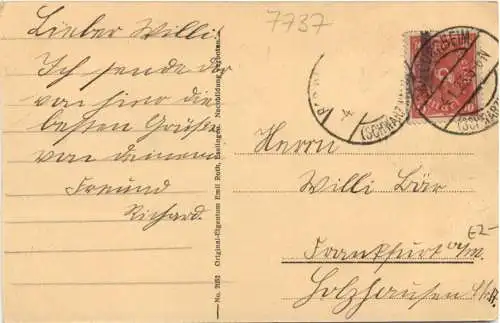 7737
Lieber Willi
Ich sende dir
von hier die
besten Grüße
von deinem
Freund
Richard.
No. 2052 Original-Eigentum Emil Roth, Esslingen. Nachbildung verboten.
(SCHWAB
Herrn
Willi Bär
E2-
Frankfurt a/m.
Holzhausen